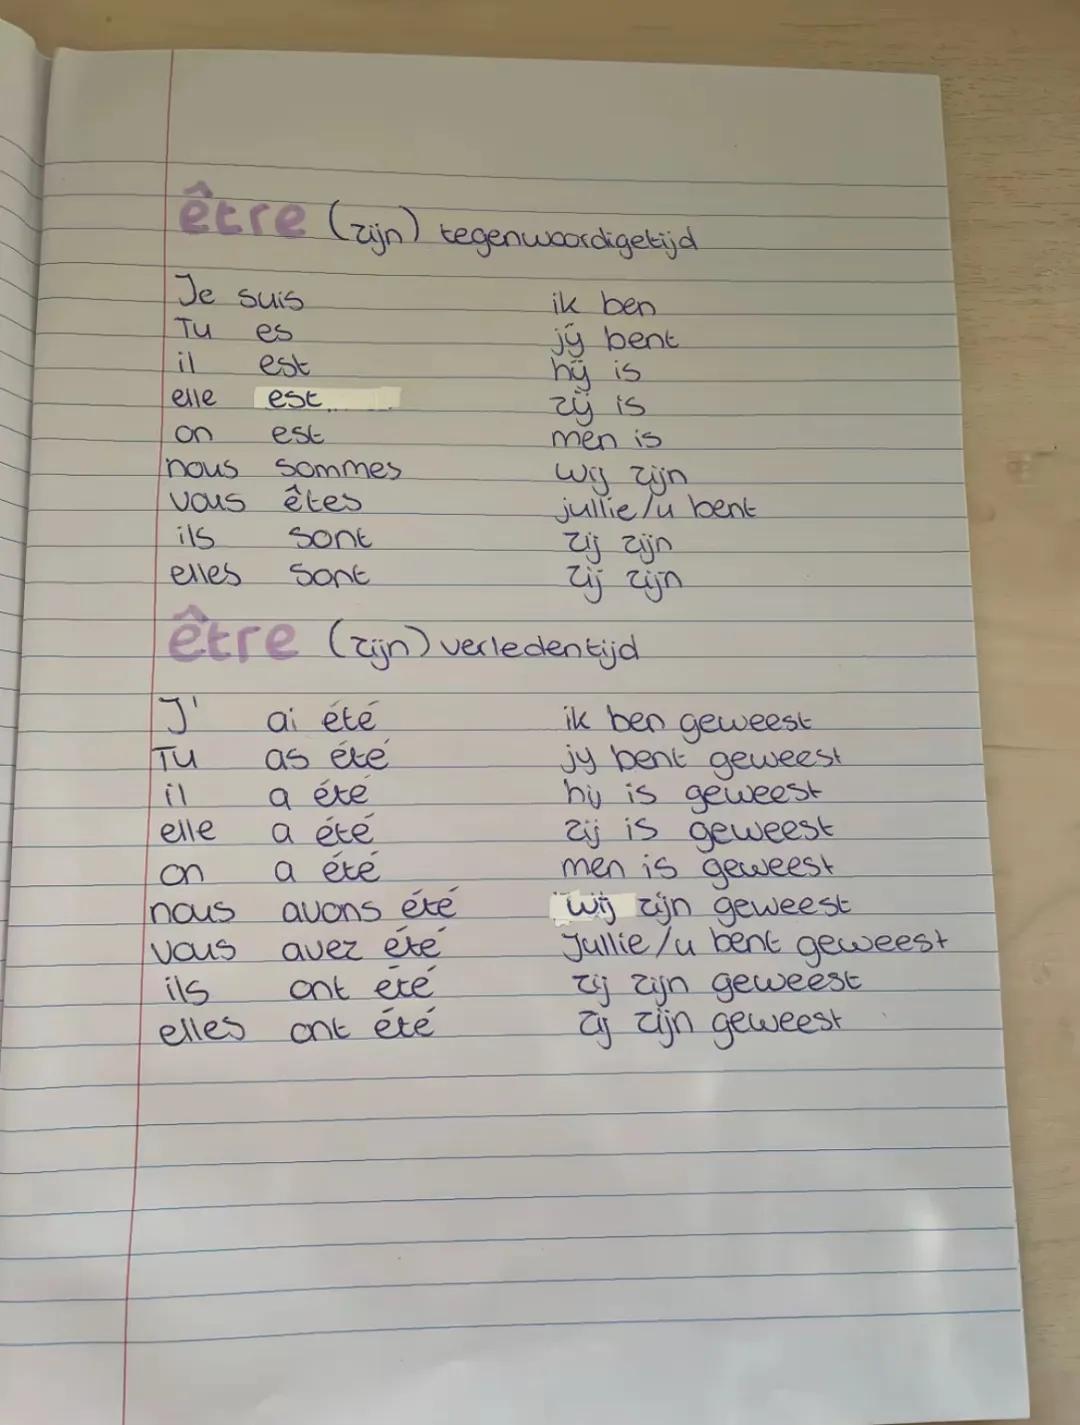 être (zijn) tegenwoordigetijd
Je suis ik ben
Tu es jij bent
il est hij is
elle est zij is
on est men is
nous sommes wij zijn
vous êtes jullie/u bent
ils sont zij zijn
elles sont zij zijn
être (zijn) verledentijd
J' ai été ik ben geweest
Tu as été jy bent geweest
il a été hij is geweest
elle a été zij is geweest
on a été men is geweest
nous avons été wij zijn geweest
vous avez été Jullie/u bent geweest
ils ont été zij zijn geweest
elles ont été zij zijn geweest